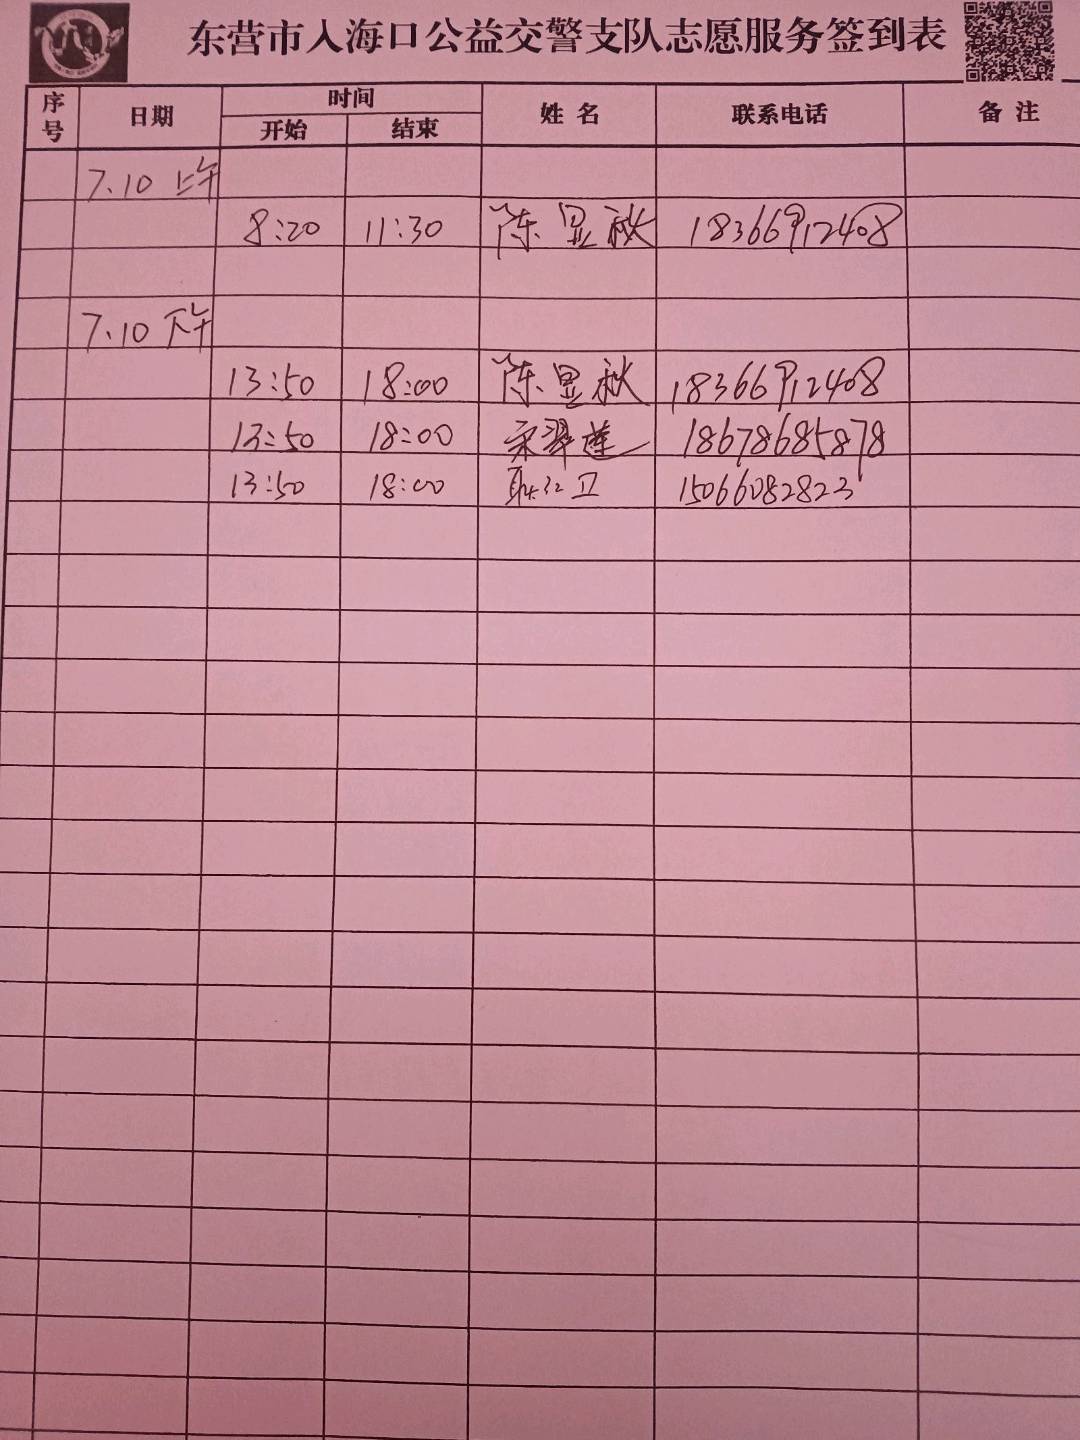 东营市入海口公益交警支队志愿服务签到表
序号 日期 时间 姓名 联系电话 备注
开始 结束
7.10 上午
8:20 11:30 陈显秋 18366912408
7.10 下午
13:50 18:00 陈显秋 18366912408
13:50 18:00 宋翠莲 18678685878
13:50 18:00 耿红卫 15066082823